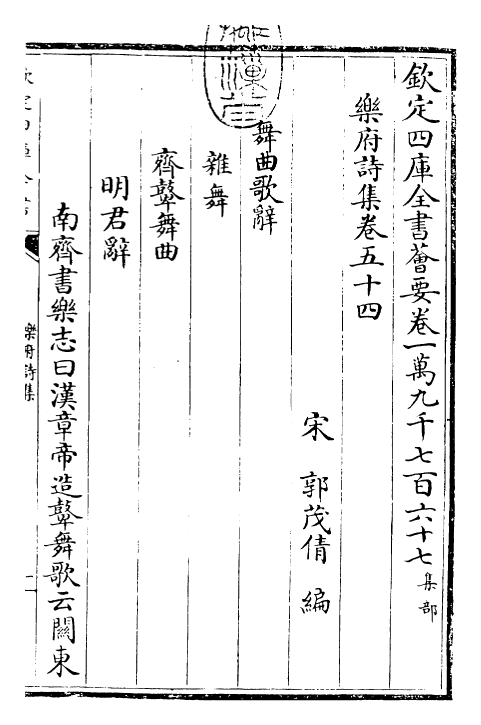 欽定四庫全書薈要卷一萬九千七百六十七 集部
樂府詩集卷五十四
宋 郭茂倩 編
舞曲歌辭
雜舞
齊鼙舞曲
明君辭
南齊書樂志曰漢章帝造鼙舞歌云關東
樂府詩集